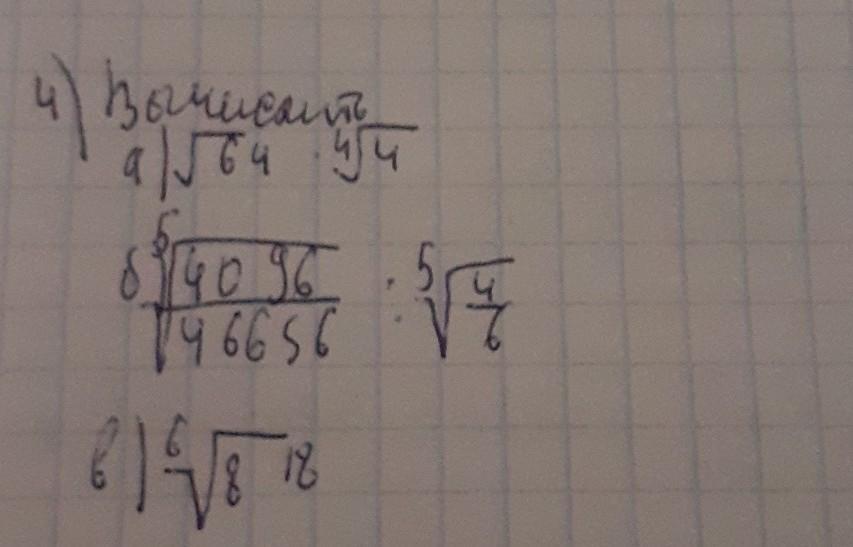 4) Вычислить
а) √64 · ⁴√4
б ⁵√(4096/46656) : ⁵√(4/6)
в) ⁶√8 18